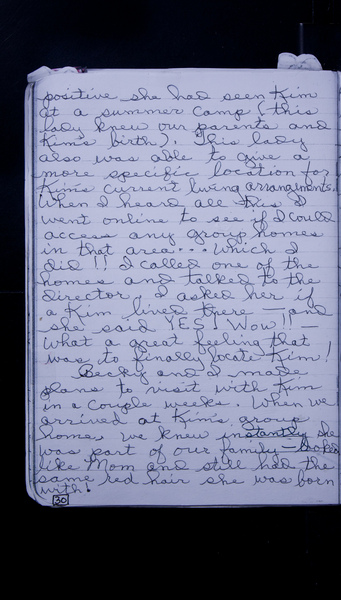 positive she had seen Kim
at a summer camp (this
lady knew our parents and
Kim's birth). This lady
also was able to give a
more specific location for
Kim's current living arrangements.
When I heard all this I
went online to see if I could
access any group homes
in that area... which I
did!! I called one of the
homes and talked to the
director, I asked her if
a Kim lived there — and
she said YES! Wow!! —
what a great feeling that
was to finally locate Kim!
Becky and I made
plans to visit with Kim
in a couple weeks. When we
arrived at Kim's group
home, we knew instantly she
was part of our family — looked
like Mom and still had the
same red hair she was born
with!
30